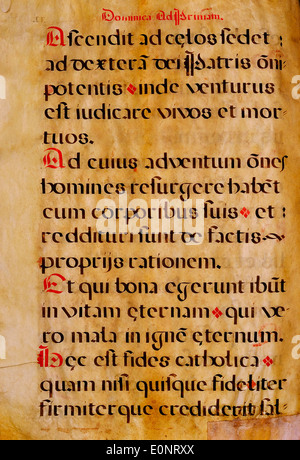 Dominica Ad Primam.
Ascendit ad cęlos sedet :
ad dexterā dei Patris om̄i
potentis inde venturus
est iudicare vivos et mor
tuos.
Ad cuius adventum om̄es
homines resurgere habēt
cum corporibus suis et :
reddituri sunt de factis
proprijs rationem.
Et qui bona egerunt ibūt
in vitam ęternam qui ve
ro mala in ignē ęternum.
Hęc est fides catholica
quam nisi quisque fideliter
firmiterque crediderit sal-
alamy
E0NRXX